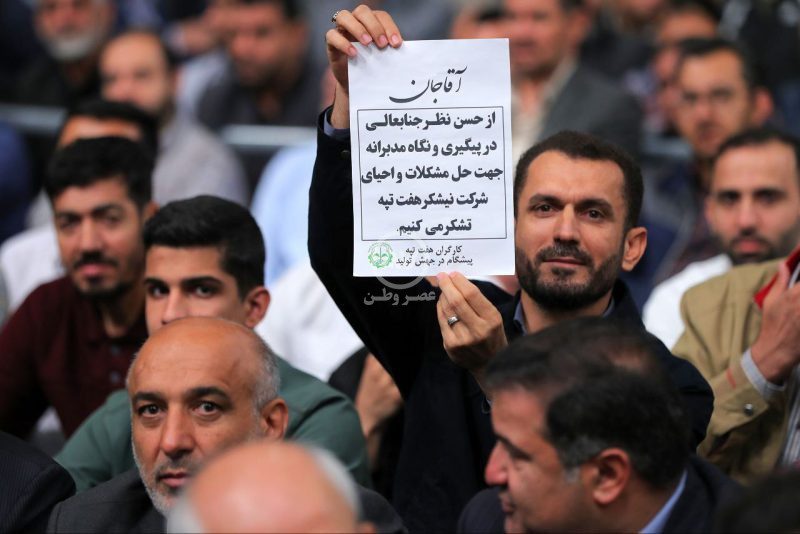 آقاجان
از حسن نظر جنابعالی
در پیگیری و نگاه مدبرانه
جهت حل مشکلات و احیای
شرکت نیشکر هفت تپه
تشکر می کنیم.
کارگران هفت تپه
پیشگام در جهش تولید
عصر وطن